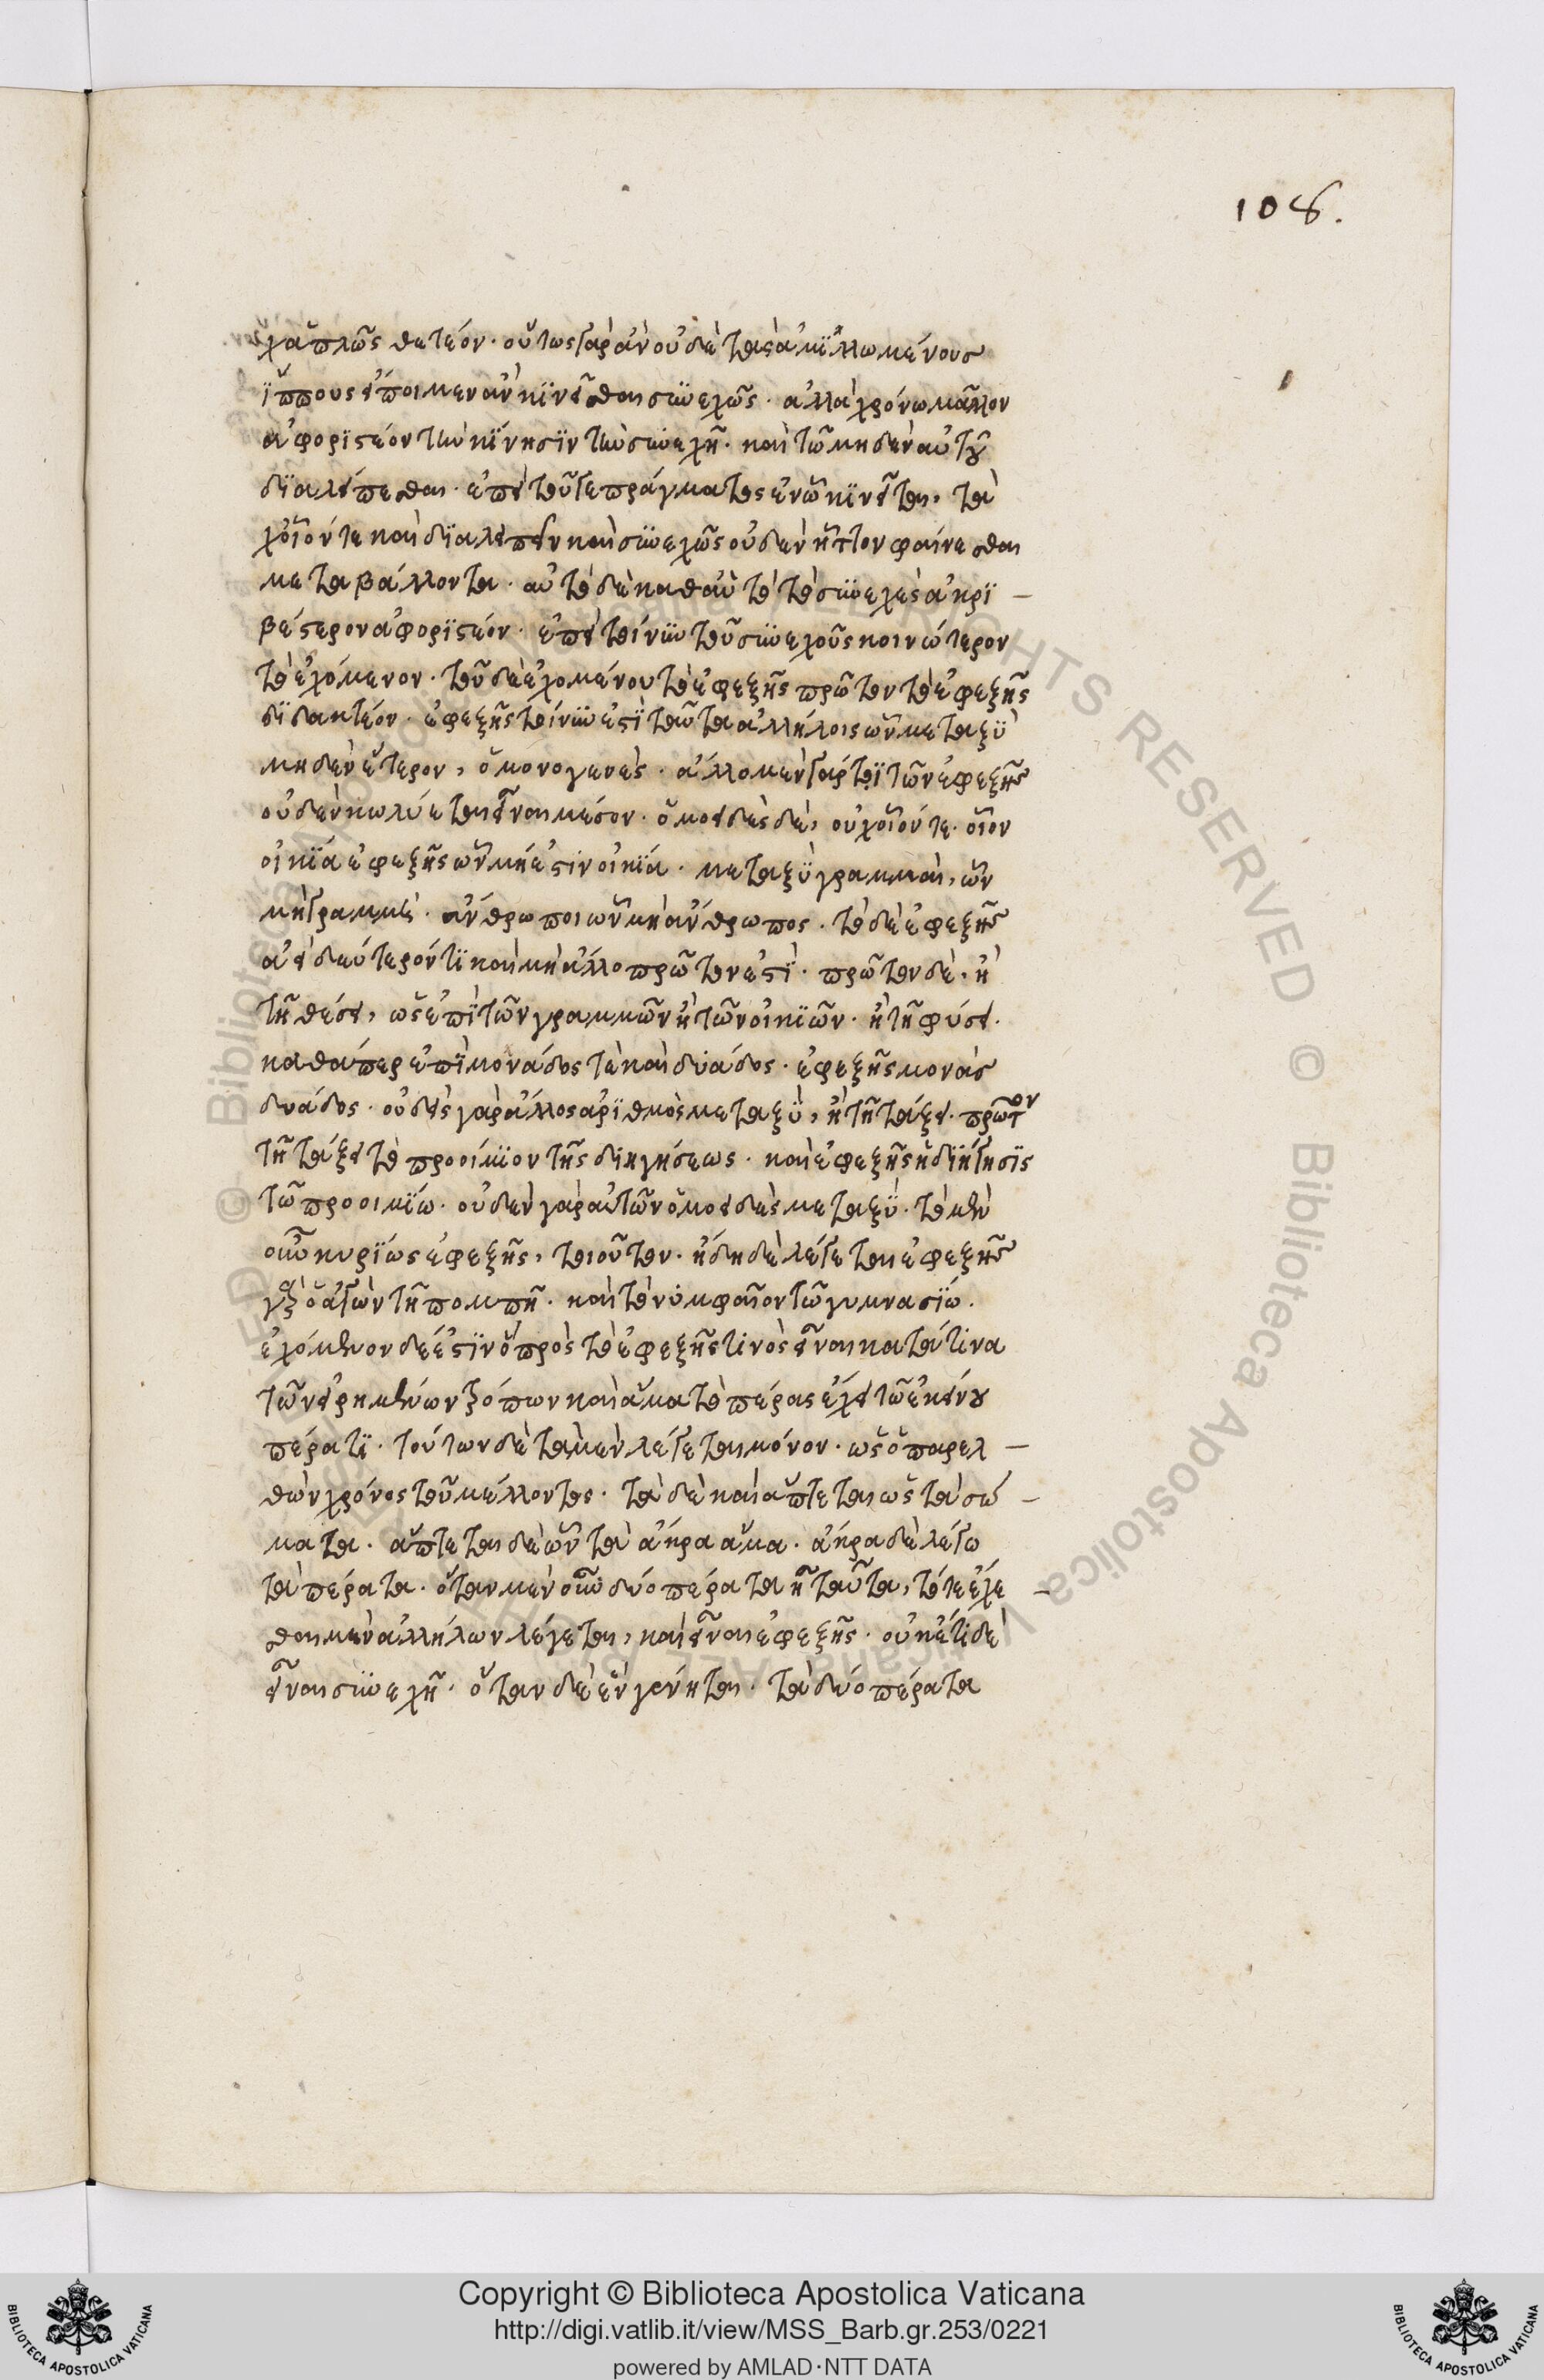 108.
χ ἁπλῶς θετέον· οὕτως γὰρ ἂν οὐδὲ τοὺς ἁμιλλωμένους
ἵππους εἴποιμεν ἂν κινεῖσθαι συνεχῶς· ἀλλὰ χρόνω μᾶλλον
ἀφοριστέον τὴν κίνησιν τὴν συνεχῆ· καὶ τῶ μηδὲν αὐτοῦ
διαλείπεσθαι· ἐπεὶ τοῦγε πράγματος ἐν ὧ κινεῖται, τὰ
χοἷόν τε καὶ διαλείπειν καὶ συνεχῶς οὐδὲν ἧττον φαίνεσθαι
μεταβάλλοντα· αὐτὸ δὲ καθ' αὑτὸ τὸ συνεχὲς ἀκρι –
βέστερον ἀφοριστέον· ἐπεὶ τοίνυν τοῦ συνεχοῦς κοινώτερον
τὸ ἐχόμενον· τοῦ δὲ ἐχομένου τὸ ἐφεξῆς πρῶτον τὸ ἐφεξῆς
διδακτέον· ἐφεξῆς τοίνυν ἐστὶ ταῦτα ἀλλήλοις ὧν μεταξὺ
μηδὲν ἕτερον, ὁμονογενὲς· ἄλλο μὲν γάρ τι τῶν ἐφεξῆς
οὐδὲν κωλύεται εἶναι μέσον· ὁμοειδὲς δὲ, οὐχοἷόν τε· οἷον
οἰκία ἐφεξῆς ὧν μή ἐστιν οἰκία· μεταξὺ γραμμαὶ, ὧν
μὴ γραμμὲ· ἄνθρωποι ὧν μὴ ἄνθρωπος· τὸ δὲ ἐφεξῆς
ἀεὶ δεύτερόν τι καὶ μὴ ἄλλο πρῶτον ἐστὶ· πρῶτον δὲ, ἢ
τῆ θέσει, ὡς ἐπὶ τῶν γραμμῶν ἢ τῶν οἰκιῶν· ἢ τῆ φύσει·
καθάπερ ἐπὶ μονάδος τὲ καὶ δυάδος· ἐφεξῆς μονὰς
δυάδος· οὐδεὶς γὰρ ἄλλος ἀριθμὸς μεταξὺ, ἢ τῆ τάξει· πρῶτον
τῆ τάξει τὸ προοίμιον τῆς διηγήσεως· καὶ ἐφεξῆς ἡ διήγησις
τῶ προοιμίω· οὐδὲν γὰρ αὐτῶν ὁμοειδὲς μεταξὺ· τὸ μὲν
οὖν κυρίως ἐφεξῆς, τοιοῦτον· ἤδη δὲ λέγεται ἐφεξῆς
ὁ ἀγὼν τῆ πομπῆ· καὶ τὸ νύμφαιον τῶ γυμνασίω.
ἐχόμενον δέ ἐστιν ὃ πρὸς τὸ ἐφεξῆς τινὸς εἶναι κατά τινα
τῶν εἰρημένων τρόπων καὶ ἅμα τὸ πέρας ἔχει τῶ ἐκείνου
πέρατι· τούτων δὲ τὰ μὲν λέγεται μόνον· ὡς ὁ παρελ –
θὼν χρόνος τοῦ μέλλοντος· τὰ δὲ καὶ ἅπτεται ὡς τὰ σώ –
ματα· ἅπτεται δὲ ὧν τὰ ἄκρα ἅμα· ἄκρα δὲ λέγω
τὰ πέρατα· ὅταν μὲν οὖν δύο πέρατα ἦ ταῦτα, τότε ἔχε –
σθαι μὲν ἀλλήλων λέγεται, καὶ εἶναι ἐφεξῆς· οὐκέτι δὲ
εἶναι συνεχῆ· ὅταν δὲ ἓν γένηται· τὰ δύο πέρατα
Copyright © Biblioteca Apostolica Vaticana
http://digi.vatlib.it/view/MSS_Barb.gr.253/0221
powered by AMLAD·NTT DATA